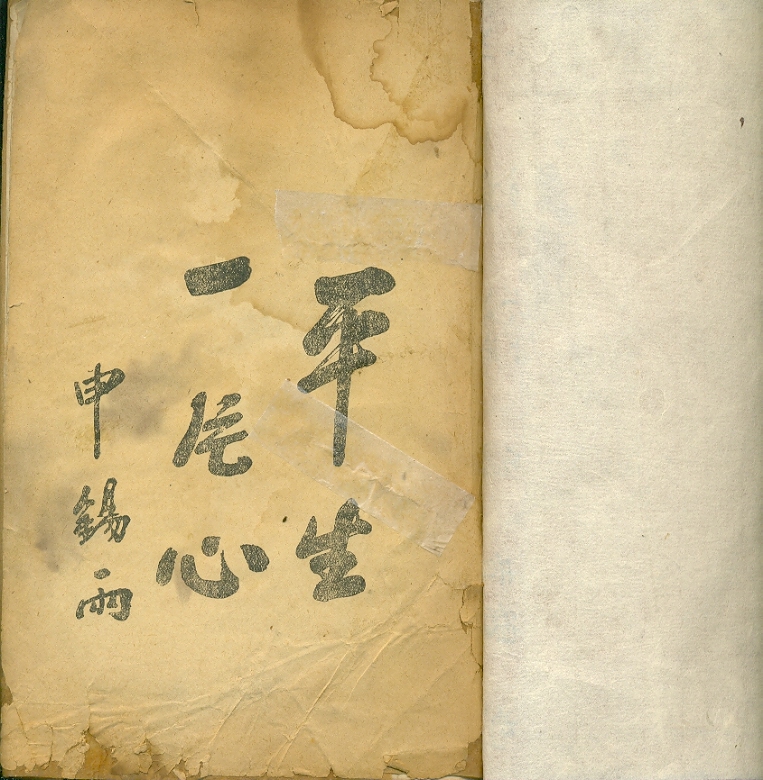 平生
一片心
申錫雨